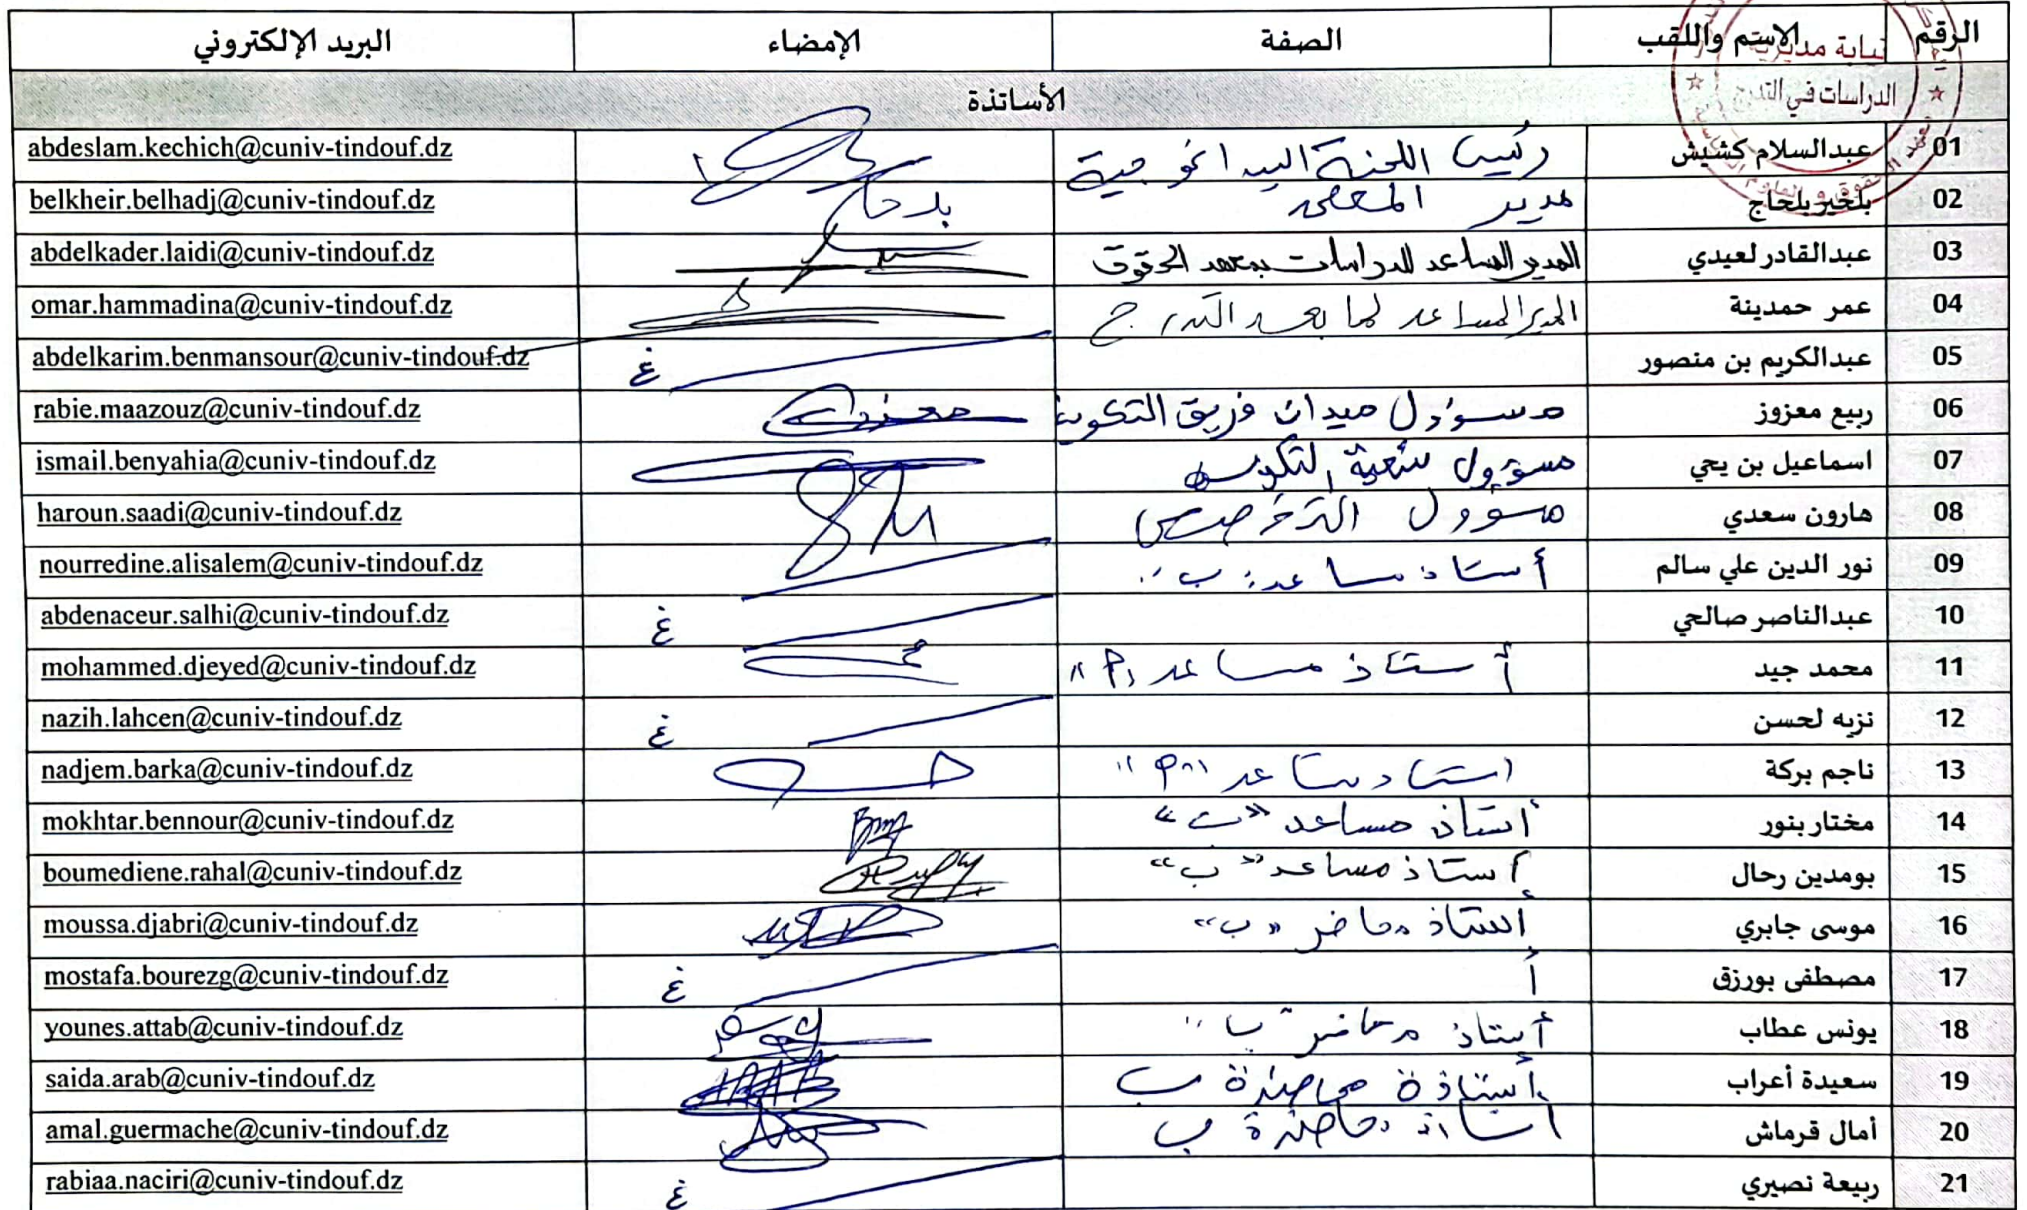 الرقم الاسم واللقب الصفة الإمضاء البريد الإلكتروني
نيابة مديرية
الدراسات في التدرج
الأساتذة
01 عبدالسلام كشيش رئيس اللجنة البيداغوجية abdeslam.kechich@cuniv-tindouf.dz
02 بلخير بلحاج مدير المعهد بلحاج belkheir.belhadj@cuniv-tindouf.dz
03 عبدالقادر لعيدي المدير المساعد للدراسات بمعهد الحقوق abdelkader.laidi@cuniv-tindouf.dz
04 عمر حمدينة المدير المساعد لما بعد التدرج omar.hammadina@cuniv-tindouf.dz
05 عبدالكريم بن منصور غ abdelkarim.benmansour@cuniv-tindouf.dz
06 ربيع معزوز مسؤول ميدان فريق التكوين rabie.maazouz@cuniv-tindouf.dz
07 اسماعيل بن يحي مسؤول شعبة التكوين ismail.benyahia@cuniv-tindouf.dz
08 هارون سعدي مسؤول التخصص haroun.saadi@cuniv-tindouf.dz
09 نور الدين علي سالم أستاذ مساعد "ب" nourredine.alisalem@cuniv-tindouf.dz
10 عبدالناصر صالحي غ abdenaceur.salhi@cuniv-tindouf.dz
11 محمد جيد أستاذ مساعد "أ" mohammed.djeyed@cuniv-tindouf.dz
12 نزيه لحسن غ nazih.lahcen@cuniv-tindouf.dz
13 ناجم بركة استاذ مساعد "أ" nadjem.barka@cuniv-tindouf.dz
14 مختار بنور أستاذ مساعد "ب" mokhtar.bennour@cuniv-tindouf.dz
15 بومدين رحال أستاذ مساعد "ب" boumediene.rahal@cuniv-tindouf.dz
16 موسى جابري أستاذ محاضر "ب" moussa.djabri@cuniv-tindouf.dz
17 مصطفى بورزق أ غ mostafa.bourezg@cuniv-tindouf.dz
18 يونس عطاب أستاذ محاضر "ب" younes.attab@cuniv-tindouf.dz
19 سعيدة أعراب أستاذة محاضرة ب saida.arab@cuniv-tindouf.dz
20 أمال قرماش أستاذة محاضرة ب amal.guermache@cuniv-tindouf.dz
21 ربيعة نصيري غ rabiaa.naciri@cuniv-tindouf.dz